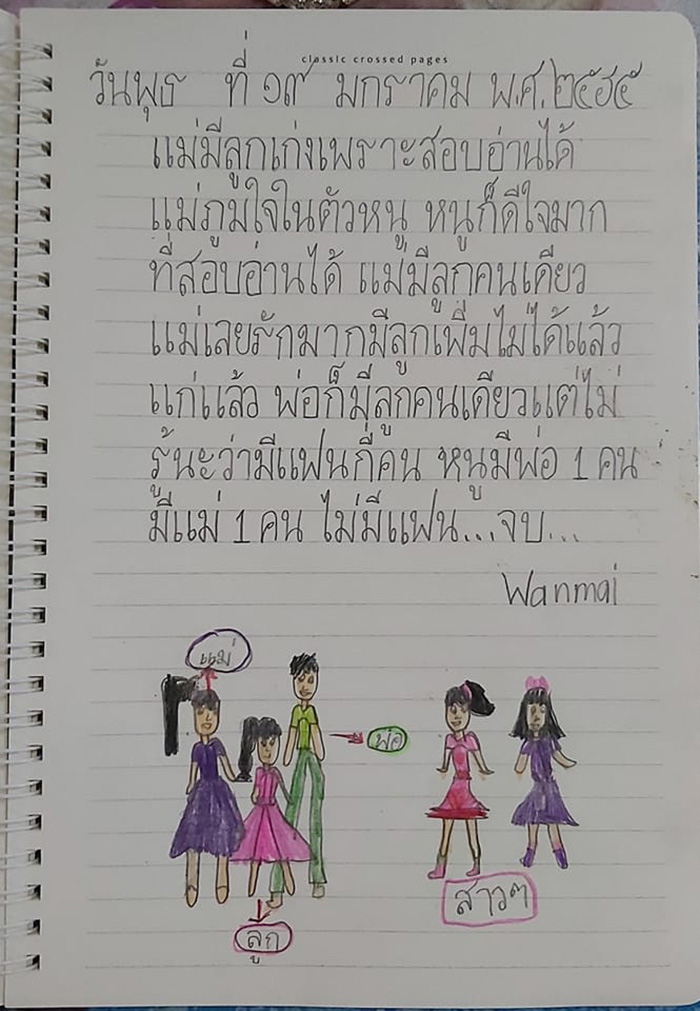 classic crossed pages
วันพุธ ที่ ๑๙ มกราคม พ.ศ.๒๕๖๕
แม่มีลูกเก่งเพราะสอบอ่านได้
แม่ภูมใจในตัวหนู หนูก็ดีใจมาก
ที่สอบอ่านได้ แม่มีลูกคนเดียว
แม่เลยรักมากมีลูกเพิ่มไม่ได้แล้ว
แก่แล้ว พ่อก็มีลูกคนเดียวแต่ไม่
รู้นะว่ามีแฟนกี่คน หนูมีพ่อ 1 คน
มีแม่ 1 คน ไม่มีแฟน...จบ...
Wanmai
แม่
พ่อ
ลูก
สาวๆ